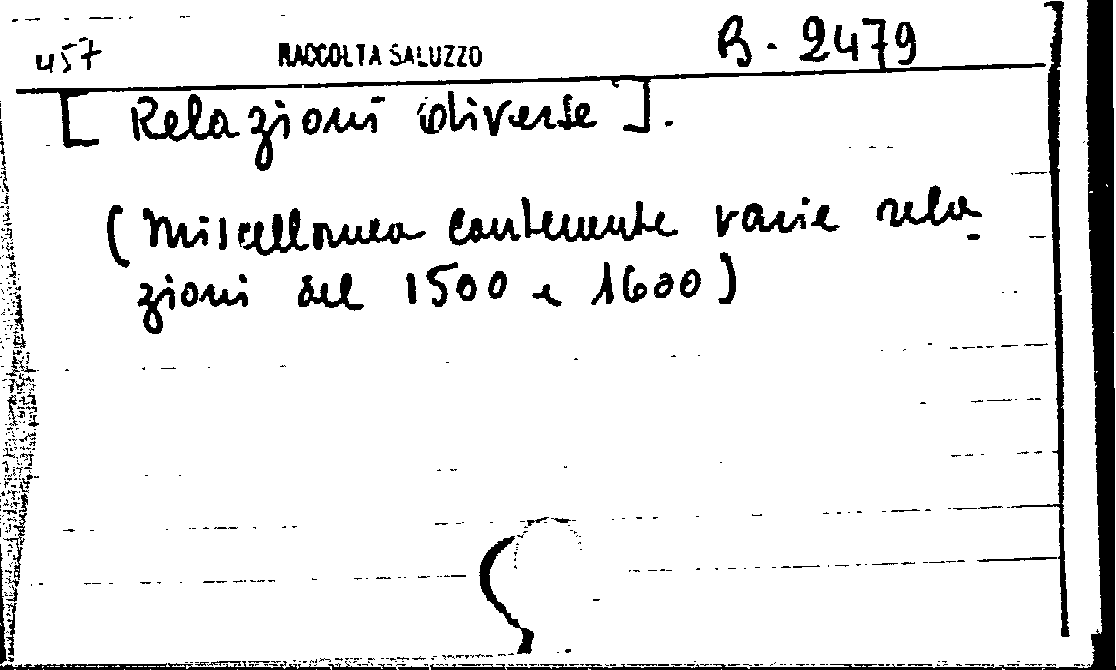 457 RACCOLTA SALUZZO B. 2479
[Relazioni diverse].
(Miscellanea contenente varie rela-
zioni del 1500 e 1600)